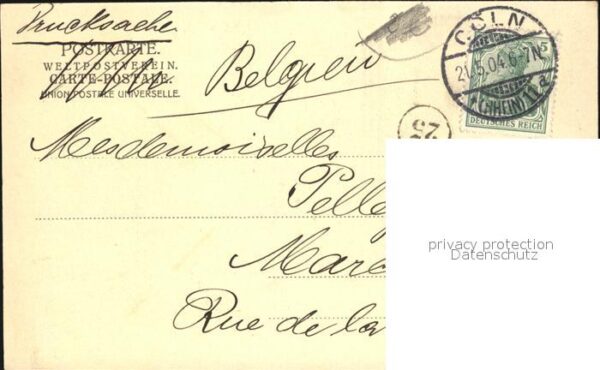 Drucksache
POSTKARTE.
WELTPOSTVEREIN.
CARTE-POSTALE.
UNION POSTALE UNIVERSELLE.
Belgien
CÖLN
21.5.04.6-7N.
(RHEIN) 11 a
5
DEUTSCHES REICH
25
Mesdemoiselles
Pelle
Marc
Rue de la
privacy protection
Datenschutz